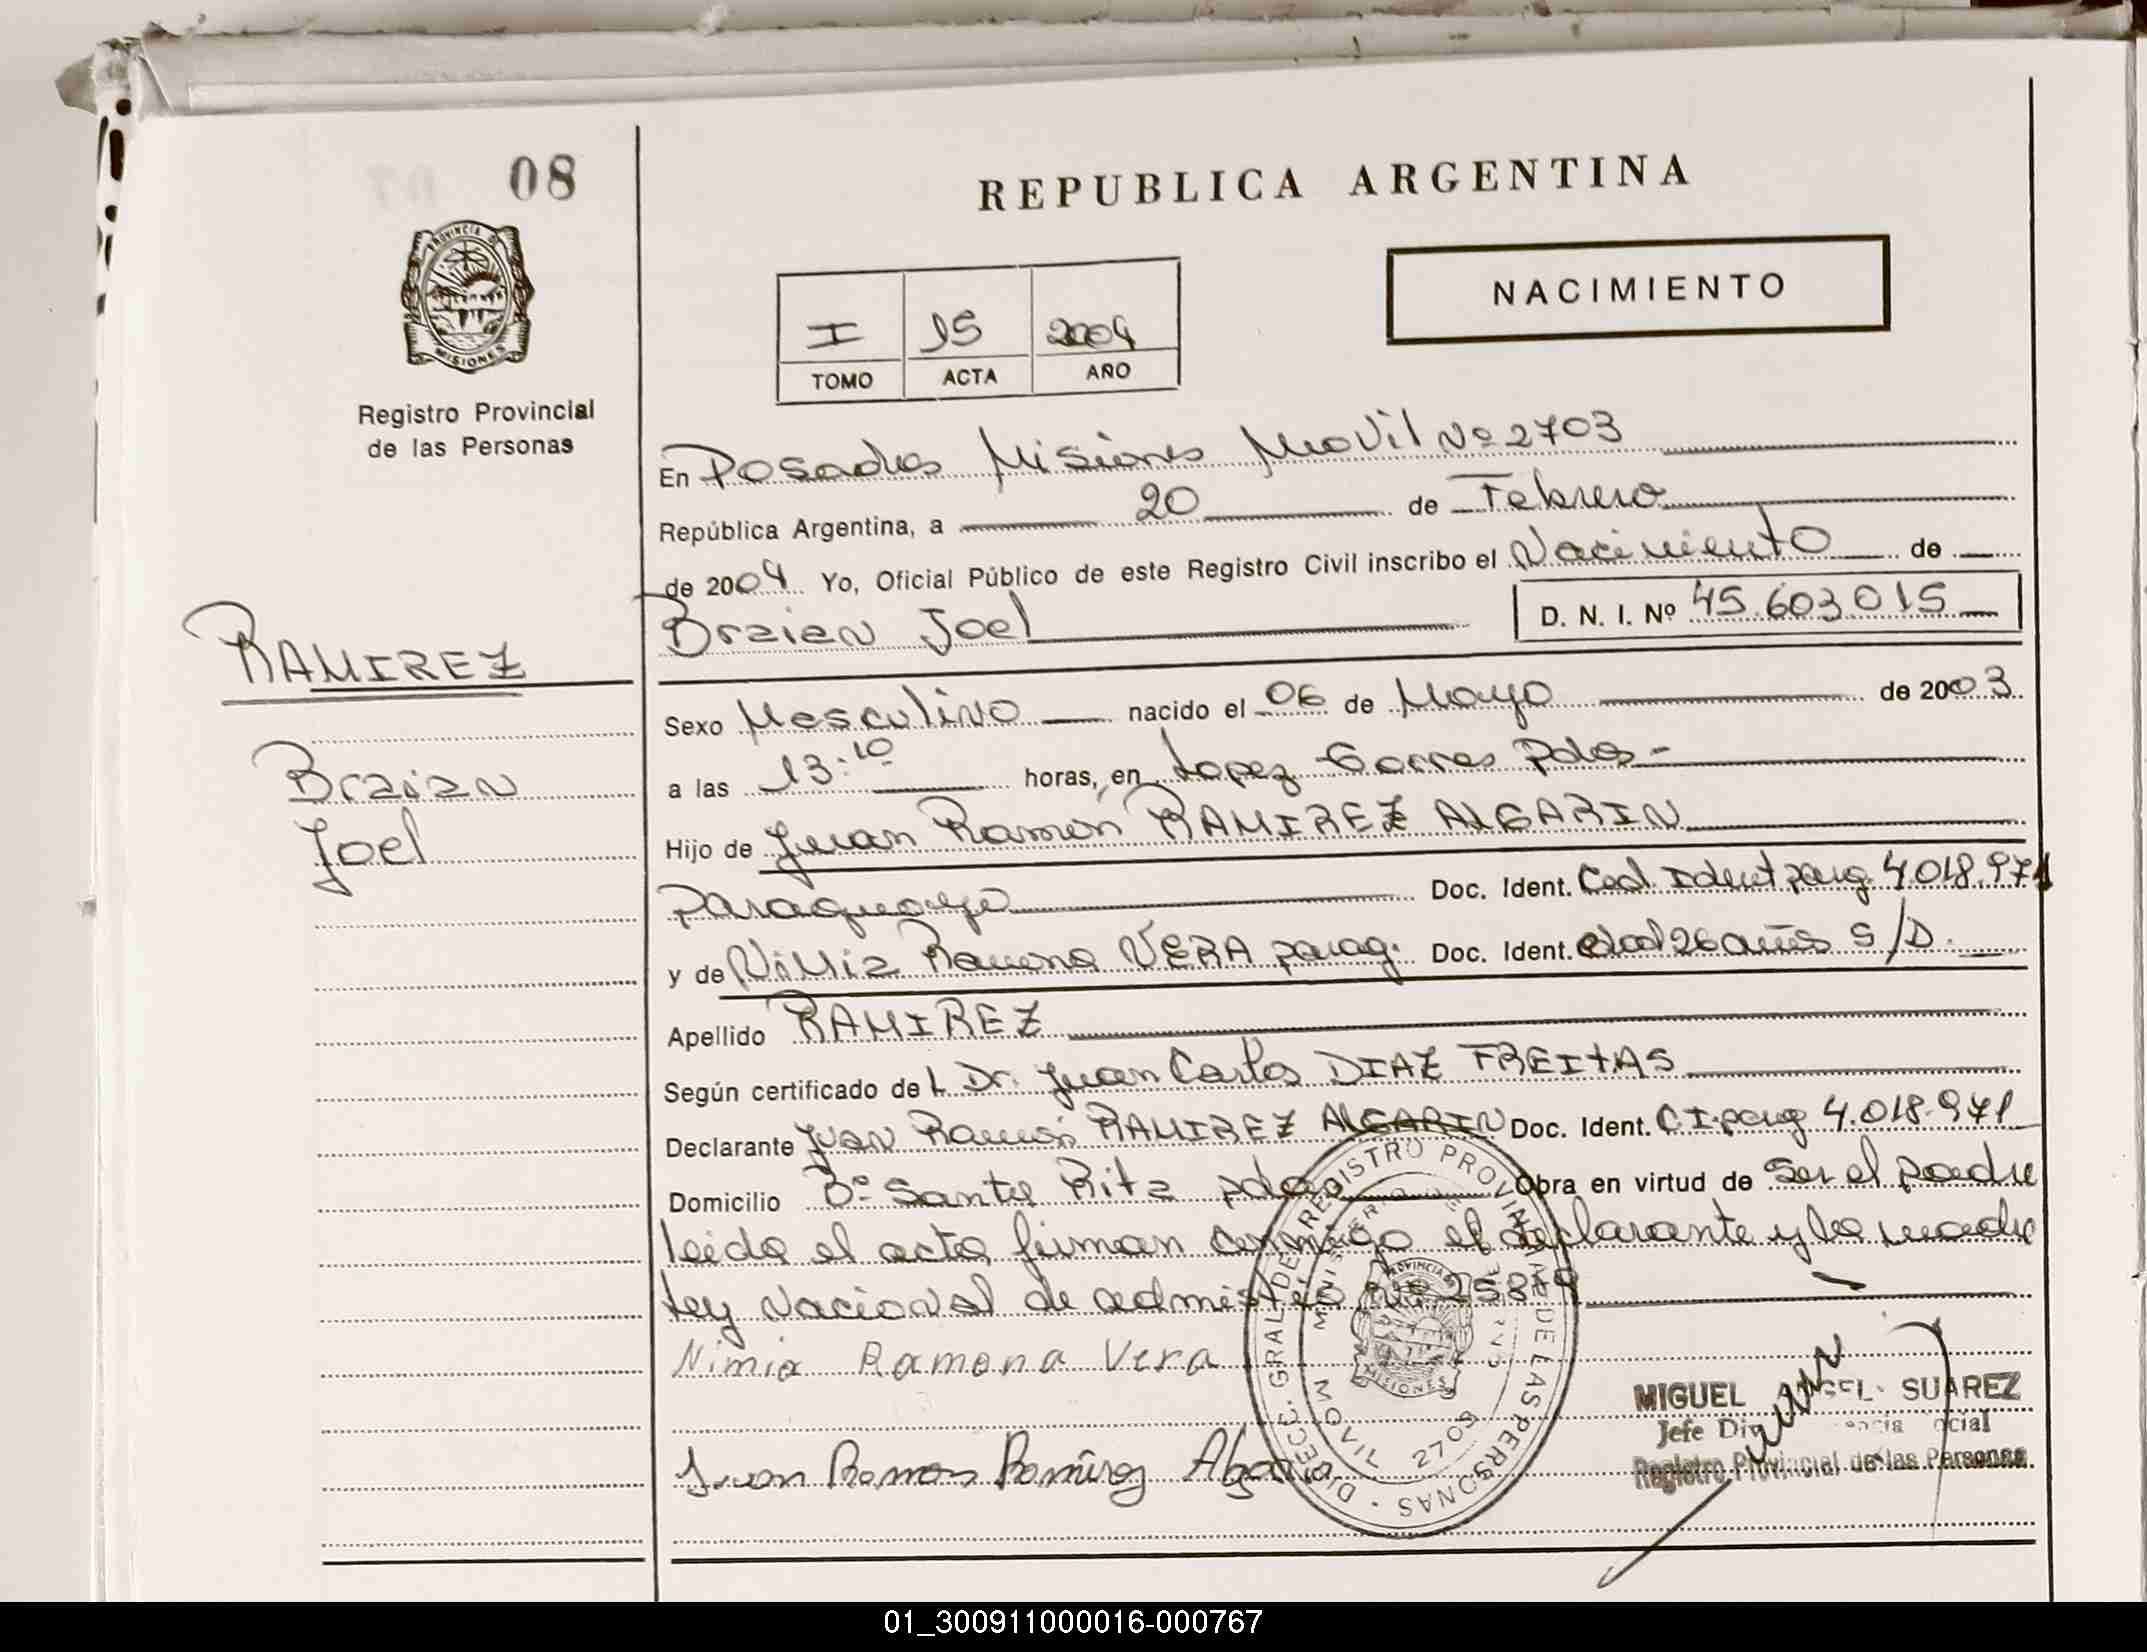 08
PROVINCIA DE
MISIONES
Registro Provincial
de las Personas
REPUBLICA ARGENTINA
NACIMIENTO
I 15 2004
TOMO ACTA AÑO
En Posadas Misiones Movil Nº 2703
República Argentina, a 20 de Febrero
de 2004 Yo, Oficial Público de este Registro Civil inscribo el Nacimiento de
Braian Joel D. N. I. Nº 45.603.015
RAMIREZ
Braian
Joel
Sexo Masculino nacido el 06 de Mayo de 2003
a las 13:10 horas, en Lopez Torres Pdas-
Hijo de Juan Ramón RAMIREZ ALGARIN
Paraguayo Doc. Ident. Ced Ident parag 4.018.971
y de Nimia Ramona VERA parag. Doc. Ident. edad 26 años S/D.
Apellido RAMIREZ
Según certificado del Dr. Juan Carlos DIAZ FREITAS
Declarante Juan Ramón RAMIREZ ALGARIN Doc. Ident. C I. parag 4.018.971
Domicilio Bº Santa Rita pdas Obra en virtud de Ser el padre
leida el acta firman conmigo el declarante y la madre
Ley Nacional de admisión Nº 25819
Nimia Ramona Vera
DIRECC. GRAL. DE REGISTRO PROVINCIAL DE LAS PERSONAS
MOVIL 2703
PROVINCIA DE
MISIONES
MIGUEL ANGEL SUAREZ
Jefe
Registro Provincial de las Personas
Juan Ramon Ramirez Algarin
01_300911000016-000767